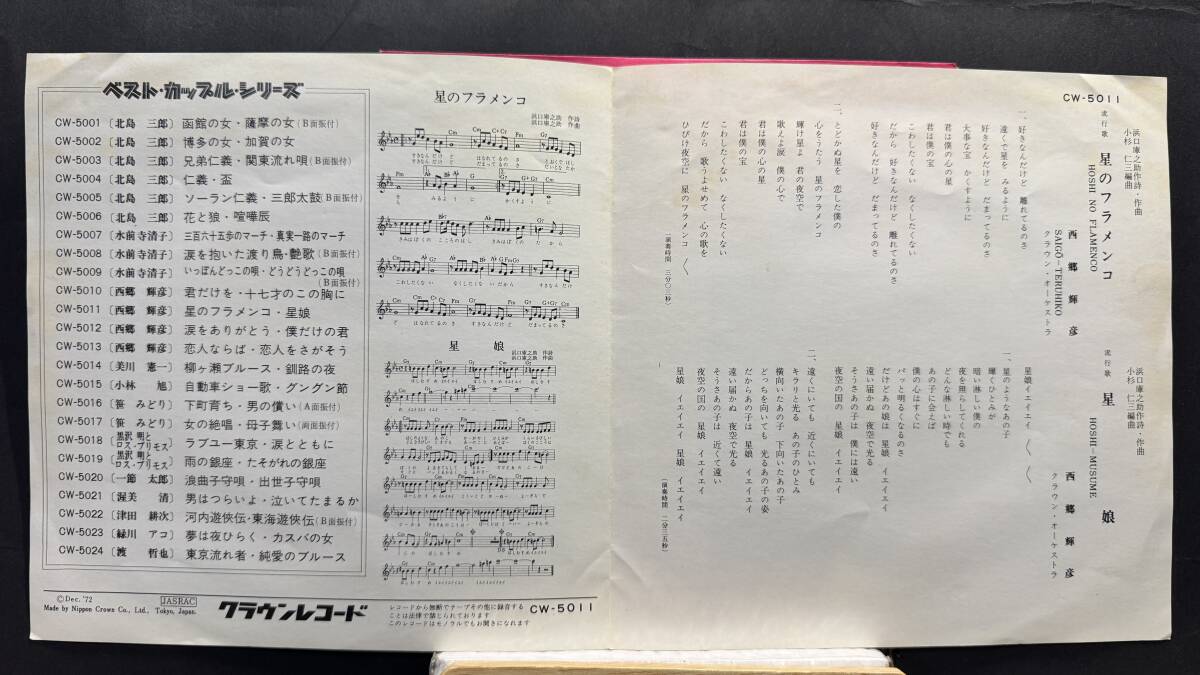 ベスト・カップル・シリーズ
CW-5001〔北島 三郎〕函館の女・薩摩の女(B面振付)
CW-5002〔北島 三郎〕博多の女・加賀の女
CW-5003〔北島 三郎〕兄弟仁義・関東流れ唄(B面振付)
CW-5004〔北島 三郎〕仁義・盃
CW-5005〔北島 三郎〕ソーラン仁義・三郎太鼓(B面振付)
CW-5006〔北島 三郎〕花と狼・喧嘩辰
CW-5007〔水前寺清子〕三百六十五歩のマーチ・真実一路のマーチ
CW-5008〔水前寺清子〕涙を抱いた渡り鳥・艶歌(B面振付)
CW-5009〔水前寺清子〕いっぽんどっこの唄・どうどうどっこの唄
(B面振付)
CW-5010〔西郷 輝彦〕君だけを・十七才のこの胸に
CW-5011〔西郷 輝彦〕星のフラメンコ・星娘
CW-5012〔西郷 輝彦〕涙をありがとう・僕だけの君
CW-5013〔西郷 輝彦〕恋人ならば・恋人をさがそう
CW-5014〔美川 憲一〕柳ヶ瀬ブルース・釧路の夜
CW-5015〔小林 旭〕自動車ショー歌・グングン節
CW-5016〔笹 みどり〕下町育ち・男の償い(A面振付)
CW-5017〔笹 みどり〕女の絶唱・母子舞い(両面振付)
CW-5018〔黒沢 明とロス・プリモス〕ラブユー東京・涙とともに
CW-5019〔黒沢 明とロス・プリモス〕雨の銀座・たそがれの銀座
CW-5020〔一節 太郎〕浪曲子守唄・出世子守唄
CW-5021〔渥美 清〕男はつらいよ・泣いてたまるか
CW-5022〔津田 耕次〕河内遊侠伝・東海遊侠伝(B面振付)
CW-5023〔緑川 アコ〕夢は夜ひらく・カスバの女
CW-5024〔渡 哲也〕東京流れ者・純愛のブルース
©Dec. '72
Made by Nippon Crown Co., Ltd., Tokyo, Japan.
JASRAC
クラウンレコード
星のフラメンコ
浜口庫之助 作詩
浜口庫之助 作曲
星 娘
浜口庫之助 作詩
浜口庫之助 作曲
レコードから無断でテープその他に録音する
ことは法律で禁じられております
このレコードはモノラルでもお聞きになれます
CW-5011
CW-5011
浜口庫之助作詩・作曲
小杉 仁三編曲
流行歌 星のフラメンコ
HOSHI NO FLAMENCO
西 郷 輝 彦
SAIGŌ-TERUHIKO
クラウン・オーケストラ
一、好きなんだけど 離れてるのさ
遠くで星を みるように
好きなんだけど だまってるのさ
大事な宝 かくすように
君は僕の心の星
君は僕の宝
こわしたくない なくしたくない
だから 好きなんだけど 離れてるのさ
好きなんだけど だまってるのさ
二、とどかぬ星を 恋した僕の
心をうたう 星のフラメンコ
輝け星よ 君の夜空で
歌えよ涙 僕の心で
君は僕の心の星
君は僕の宝
こわしたくない なくしたくない
だから 歌うよせめて 心の歌を
ひびけ夜空に 星のフラメンコ 〱
(演奏時間 三分〇三秒)
浜口庫之助作詩・作曲
小杉 仁三編曲
流行歌 星 娘
HOSHI-MUSUME
西 郷 輝 彦
クラウン・オーケストラ
星娘イエイエイ 〱 〱
一、星のようなあの子
輝くひとみが
暗い淋しい僕の
夜を照らしてくれる
どんな淋しい時でも
あの子に会えば
僕の心はすぐに
パッと明るくなるのさ
だけどあの娘は 星娘 イエイエイ
遠い届かぬ 夜空で光る
そうさあの子は 僕には遠い
夜空の国の 星娘 イエイエイ
二、遠くにいても 近くにいても
キラリと光る あの子のひとみ
横向いたあの子 下向いたあの子
どっちを向いても 光るあの子の姿
だからあの子は 星娘 イエイエイ
遠い届かぬ 夜空で光る
そうさあの子は 近くて遠い
夜空の国の 星娘 イエイエイ
星娘 イエイエイ 星娘 イエイエイ
(演奏時間 二分三五秒)